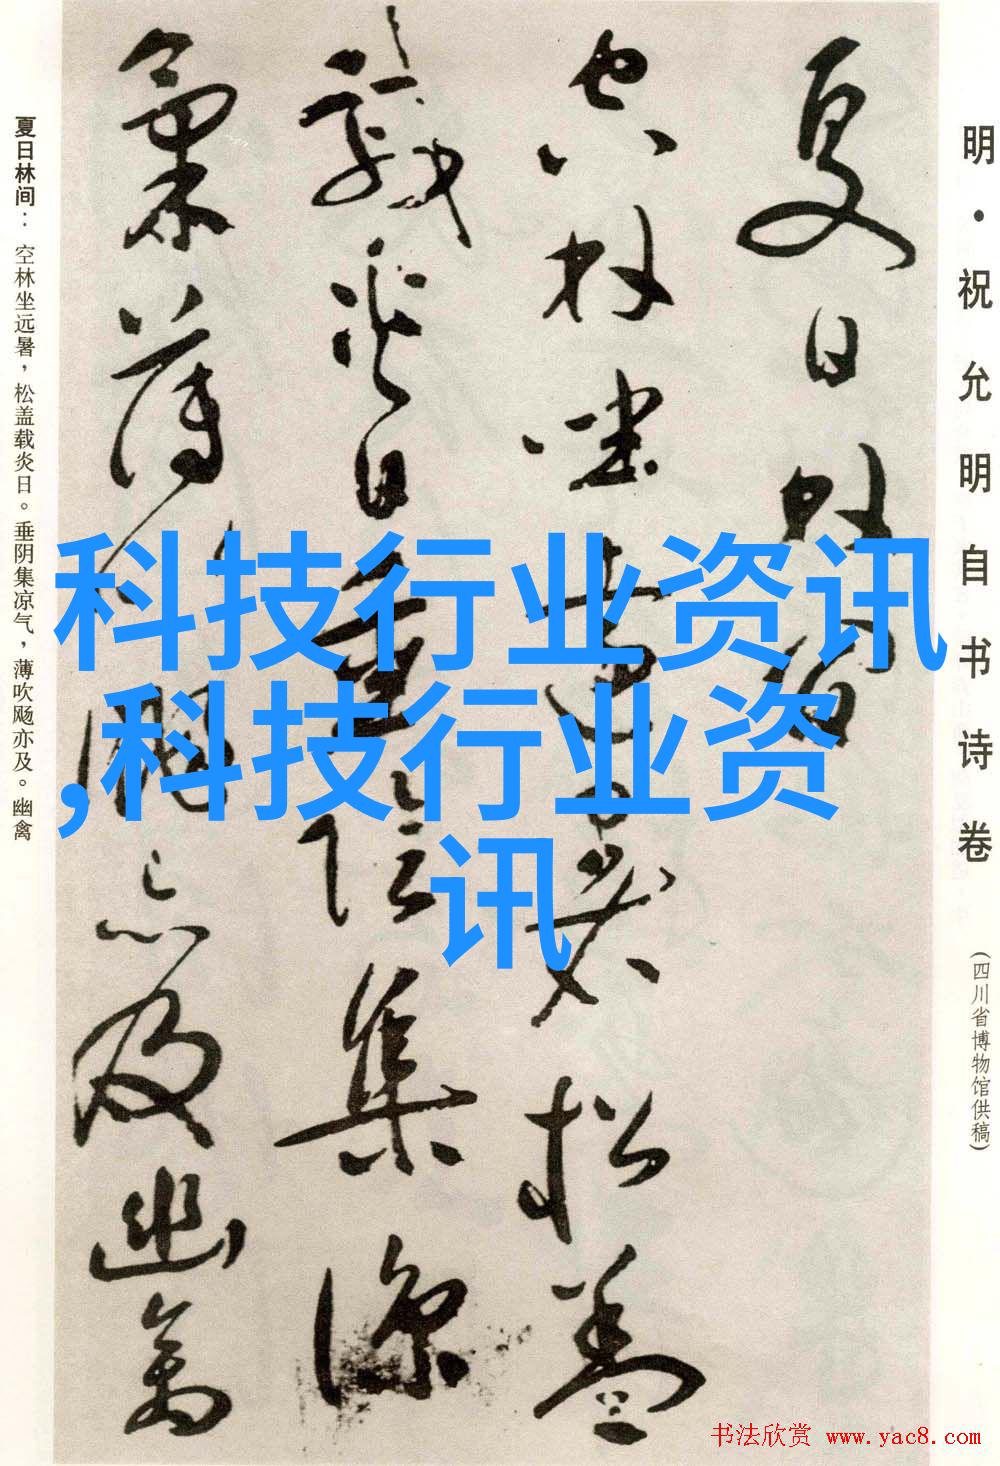 明·祝允明自书诗卷
(四川省博物馆供稿)
夏日林间
空林坐远暑松盖
载炎日垂阴集凉
气薄吹飏亦及幽禽
夏日林间：空林坐远暑，松盖载炎日。垂阴集凉气，薄吹飏亦及。幽禽
科技行业资讯
,科技行业资
讯
书法欣赏 www.yac8.com